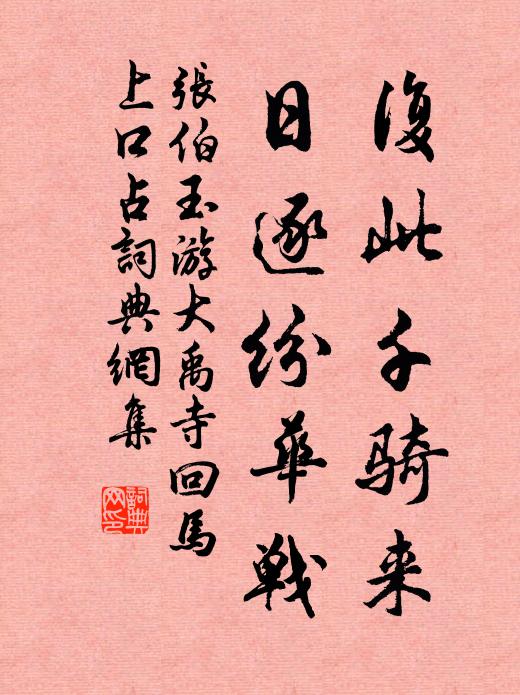 復此千骑来
日逐纷華戦
張伯玉游大禹寺回馬
上口占詞典網集
詞典
网印